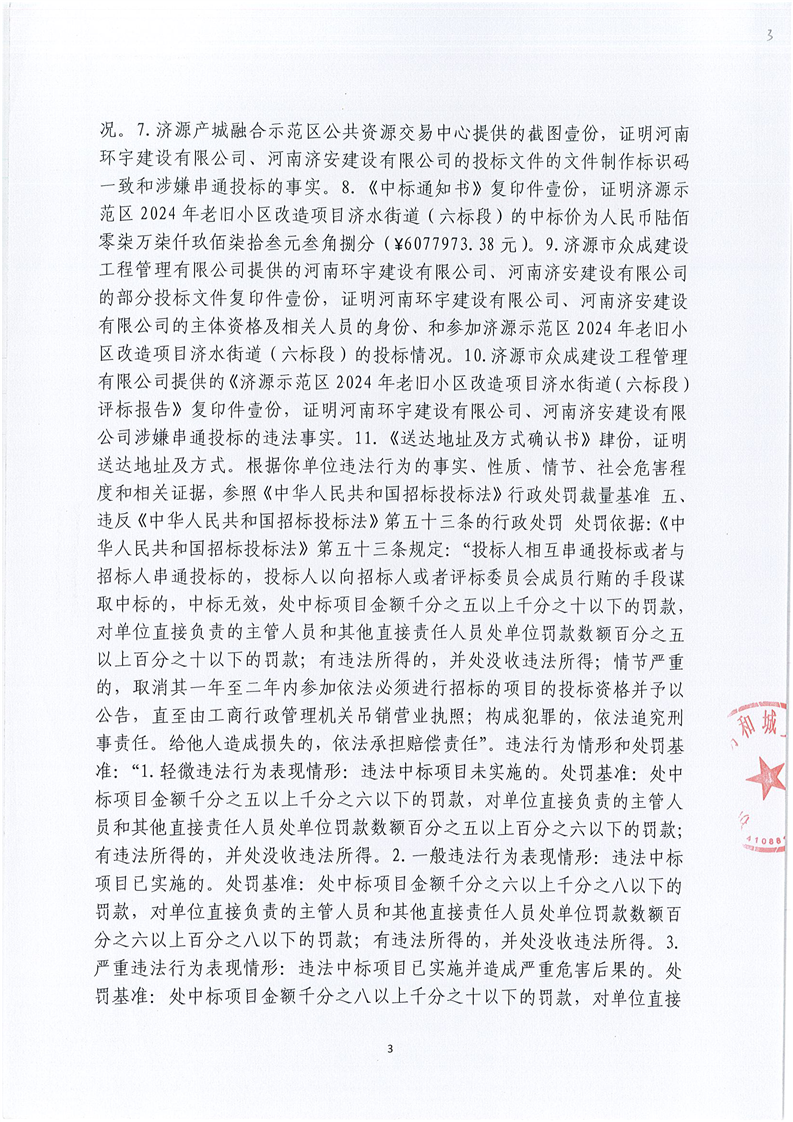 3
况。7.济源产城融合示范区公共资源交易中心提供的截图壹份，证明河南
环宇建设有限公司、河南济安建设有限公司的投标文件的文件制作标识码
一致和涉嫌串通投标的事实。8.《中标通知书》复印件壹份，证明济源示
范区2024年老旧小区改造项目济水街道（六标段）的中标价为人民币陆佰
零柒万柒仟玖佰柒拾叁元叁角捌分（¥6077973.38元）。9.济源市众成建设
工程管理有限公司提供的河南环宇建设有限公司、河南济安建设有限公司
的部分投标文件复印件壹份，证明河南环宇建设有限公司、河南济安建设
有限公司的主体资格及相关人员的身份、和参加济源示范区2024年老旧小
区改造项目济水街道（六标段）的投标情况。10.济源市众成建设工程管理
有限公司提供的《济源示范区2024年老旧小区改造项目济水街道（六标段）
评标报告》复印件壹份，证明河南环宇建设有限公司、河南济安建设有限
公司涉嫌串通投标的违法事实。11.《送达地址及方式确认书》肆份，证明
送达地址及方式。根据你单位违法行为的事实、性质、情节、社会危害程
度和相关证据，参照《中华人民共和国招标投标法》行政处罚裁量基准 五、
违反《中华人民共和国招标投标法》第五十三条的行政处罚 处罚依据：《中
华人民共和国招标投标法》第五十三条规定：“投标人相互串通投标或者与
招标人串通投标的，投标人以向招标人或者评标委员会成员行贿的手段谋
取中标的，中标无效，处中标项目金额千分之五以上千分之十以下的罚款，
对单位直接负责的主管人员和其他直接责任人员处单位罚款数额百分之五
以上百分之十以下的罚款；有违法所得的，并处没收违法所得；情节严重
的，取消其一年至二年内参加依法必须进行招标的项目的投标资格并予以
公告，直至由工商行政管理机关吊销营业执照；构成犯罪的，依法追究刑
事责任。给他人造成损失的，依法承担赔偿责任”。违法行为情形和处罚基
准：“1.轻微违法行为表现情形：违法中标项目未实施的。处罚基准：处中
标项目金额千分之五以上千分之六以下的罚款，对单位直接负责的主管人
员和其他直接责任人员处单位罚款数额百分之五以上百分之六以下的罚款；
有违法所得的，并处没收违法所得。2.一般违法行为表现情形：违法中标
项目已实施的。处罚基准：处中标项目金额千分之六以上千分之八以下的
罚款，对单位直接负责的主管人员和其他直接责任人员处单位罚款数额百
分之六以上百分之八以下的罚款；有违法所得的，并处没收违法所得。3.
严重违法行为表现情形：违法中标项目已实施并造成严重危害后果的。处
罚基准：处中标项目金额千分之八以上千分之十以下的罚款，对单位直接
和城
41088
3